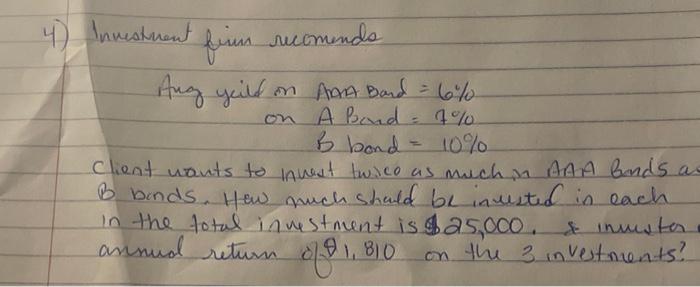 4) Investment firm recomends
Avg yeild on AAA Bond = 6%
on A Bond = 7%
B bond = 10%
Client wants to invest twice as much in AAA Bonds as
B bonds. How much should be invested in each
in the total investment is $25,000. & investor
annual return of $1,810 on the 3 investments?